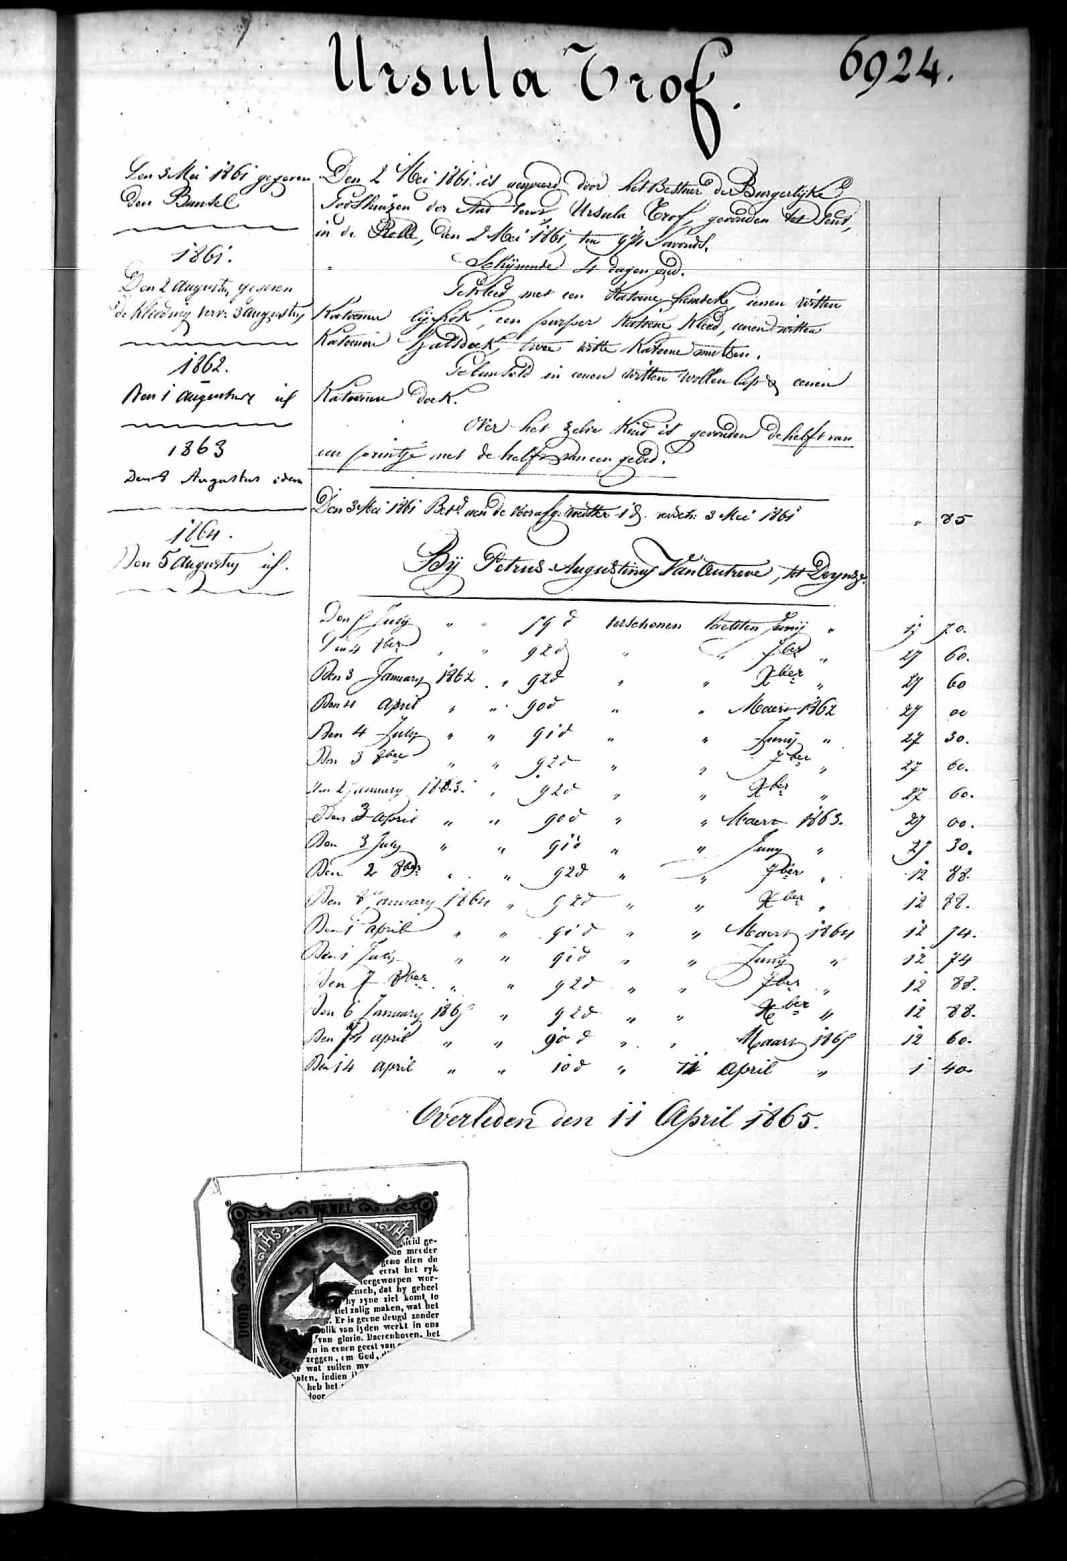 Ursula Trof.
6924.
Den 3 Mei 1861 gegeven
den Bundel
1861.
Den 2 Augusty gegeven
de kleeding verv. 3 augusty
1862.
Den 1 augustus id
1863
Den 1 Augustus idem
1864.
Den 5 augusty id.
Den 2 Mei 1861 is door het Bestuer der Burgerlyke
der Stad Ursula Trof, gevonden tot Gend,
in de Rolle, den 2 Mei 1861, ten 9¼ s'avonds.
Schijnende 4 dagen oud.
Gekleed met een Katoene hemdeke, eenen witten
Katoenen een purper Katoene Kleed, eenen witten
Katoenen twee witte Katoene mutsen.
in eenen witten wollen lap & eenen
Katoenen doek.
Over het zelve Kind is gevonden de helft van
een printje met de helft van een gebed.
Den 3 Mei 1861 Bet. aen de 1 d. 3 Mei 1861 " 85
By Petrus Augustinus Van Outreve, tot Deynze.
Den July " " 59 d verschenen Junij " 17 70.
Den 4 8ber " " 92 d " " 7ber " 27 60.
Den 3 January 1862 " 92 d " " Xber " 27 60
Den 11 April " " 90 d " " Maert 1862 27 00
Den 4 July " " 91 d " " Junij " 27 30.
Den 3 8ber " " 92 d " " 7ber " 27 60.
Den 2 January 1863. " 92 d " " Xber " 27 60.
Den 3 april " " 90 d " " Maert 1863. 27 00.
Den 3 July " " 91 d " " Juny " 27 30.
Den 2 8ber " " 92 d " " 7ber " 12 88.
Den 8 January 1864 " 92 d " " Xber " 12 88.
Den 1 april " " 91 d " " Maert 1864 12 74.
Den 1 July " " 91 d " " Junij " 12 74
Den 7 8ber " " 92 d " " 7ber " 12 88.
Den 6 January 1865 " 92 d " " Xber " 12 88.
Den 14 april " " 90 d " " Maart 1865 12 60.
Den 14 april " " 10 d " 11 april " 1 40.
Overleden den 11 April 1865.
HEMEL
IHS
DOOD
heid ge-
mreder
geno dien de
eerst het ryk
eergeworpen wor-
ensch, dat hy geheel
hy zyne ziel komt te
ziel zalig maken, wat het
. Er is geene deugd zonder
blik van lyden werkt in ons
van glorie. Daerenboven, het
n in eenen geest van
zeggen, om God,
wat zullen my
aten, indien
heb het
door